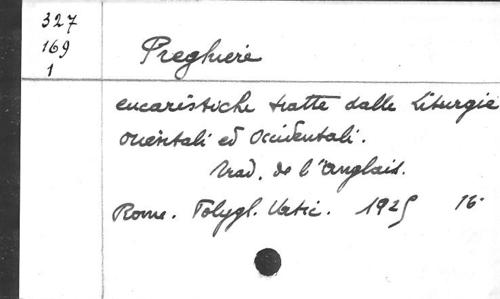 327
169
1
Preghiere
eucaristiche tratte dalle Liturgie
orientali ed occidentali.
Trad. de l'anglais.
Rome. Polygl. Vatic. 1925 16.